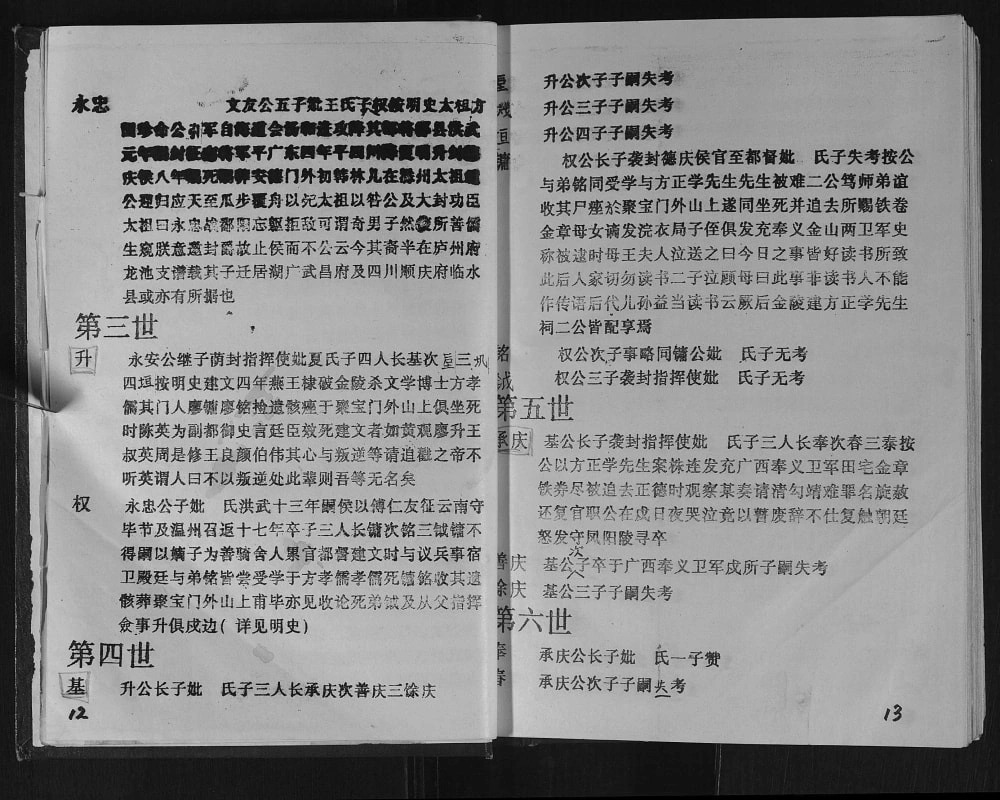 永忠 文友公五子妣王氏子权按明史太祖方
元年 平广东四年平四川
庆侯八年 死 安德门外初韩林儿在滁州太祖遣
公迎归应天至瓜步覆舟以死太祖以咎公及大封功臣
太祖曰永忠战鄱阳忘躯拒敌可谓奇男子然 所善儒
生窥朕意邀封爵故止侯而不公云今其裔半在庐州府
龙池支谱载其子迁居湖广武昌府及四川顺庆府临水
县或亦有所据也
第三世
升 永安公继子荫封指挥使妣夏氏子四人长基次 三
四垣按明史建文四年燕王棣破金陵杀文学博士方孝
儒其门人廖镛廖铭捡遗骸瘗于聚宝门外山上俱坐死
时陈英为副都御史言廷臣效死建文者如黄观廖升王
叔英周是修王良颜伯伟其心与叛逆等请追戳之帝不
听英谓人曰不以叛逆处此辈则吾等无名矣
权 永忠公子妣 氏洪武十三年嗣侯以傅仁友征云南守
毕节及温州召返十七年卒子三人长镛次铭三钺镛不
得嗣以嫡子为善骑舍人累官都督建文时与议兵事宿
卫殿廷与弟铭皆尝受学于方孝儒孝儒死镛铭收其遗
骸葬聚宝门外山上甫毕亦见收论死弟钺及从父指挥
佥事升俱戍边(详见明史)
第四世
基 升公长子妣 氏子三人长承庆次善庆三馀庆
12
升公次子子嗣失考
升公三子子嗣失考
垣 升公四子子嗣失考
镛 权公长子袭封德庆侯官至都督妣 氏子失考按公
与弟铭同受学与方正学先生先生被难二公笃师弟谊
收其尸瘗於聚宝门外山上遂同坐死并追去所赐铁卷
金章母女谪发浣衣局子侄俱发充奉义金山两卫军史
称被逮时母王夫人泣送之曰今日之事皆好读书所致
此后人家切勿读书二子泣顾母曰此事非读书人不能
作传语后代儿孙益当读书云厥后金陵建方正学先生
祠二公皆配享焉
铭 权公次子事略同镛公妣 氏子无考
钺 权公三子袭封指挥使妣 氏子无考
第五世
承庆 基公长子袭封指挥使妣 氏子三人长奉次春三泰按
公以方正学先生案株连发充广西奉义卫军田宅金章
铁券尽被追去正德时观察某奏请清勾靖难罪名旋赦
还复官职公在戍日夜哭泣竟以瞽废辞不仕复触朝廷
怒发守凤阳陵寻卒
善庆 基公次子卒于广西奉义卫军戍所子嗣失考
馀庆 基公三子子嗣失考
第六世
奉 承庆公长子妣 氏一子赞
春 承庆公次子子嗣失考
13